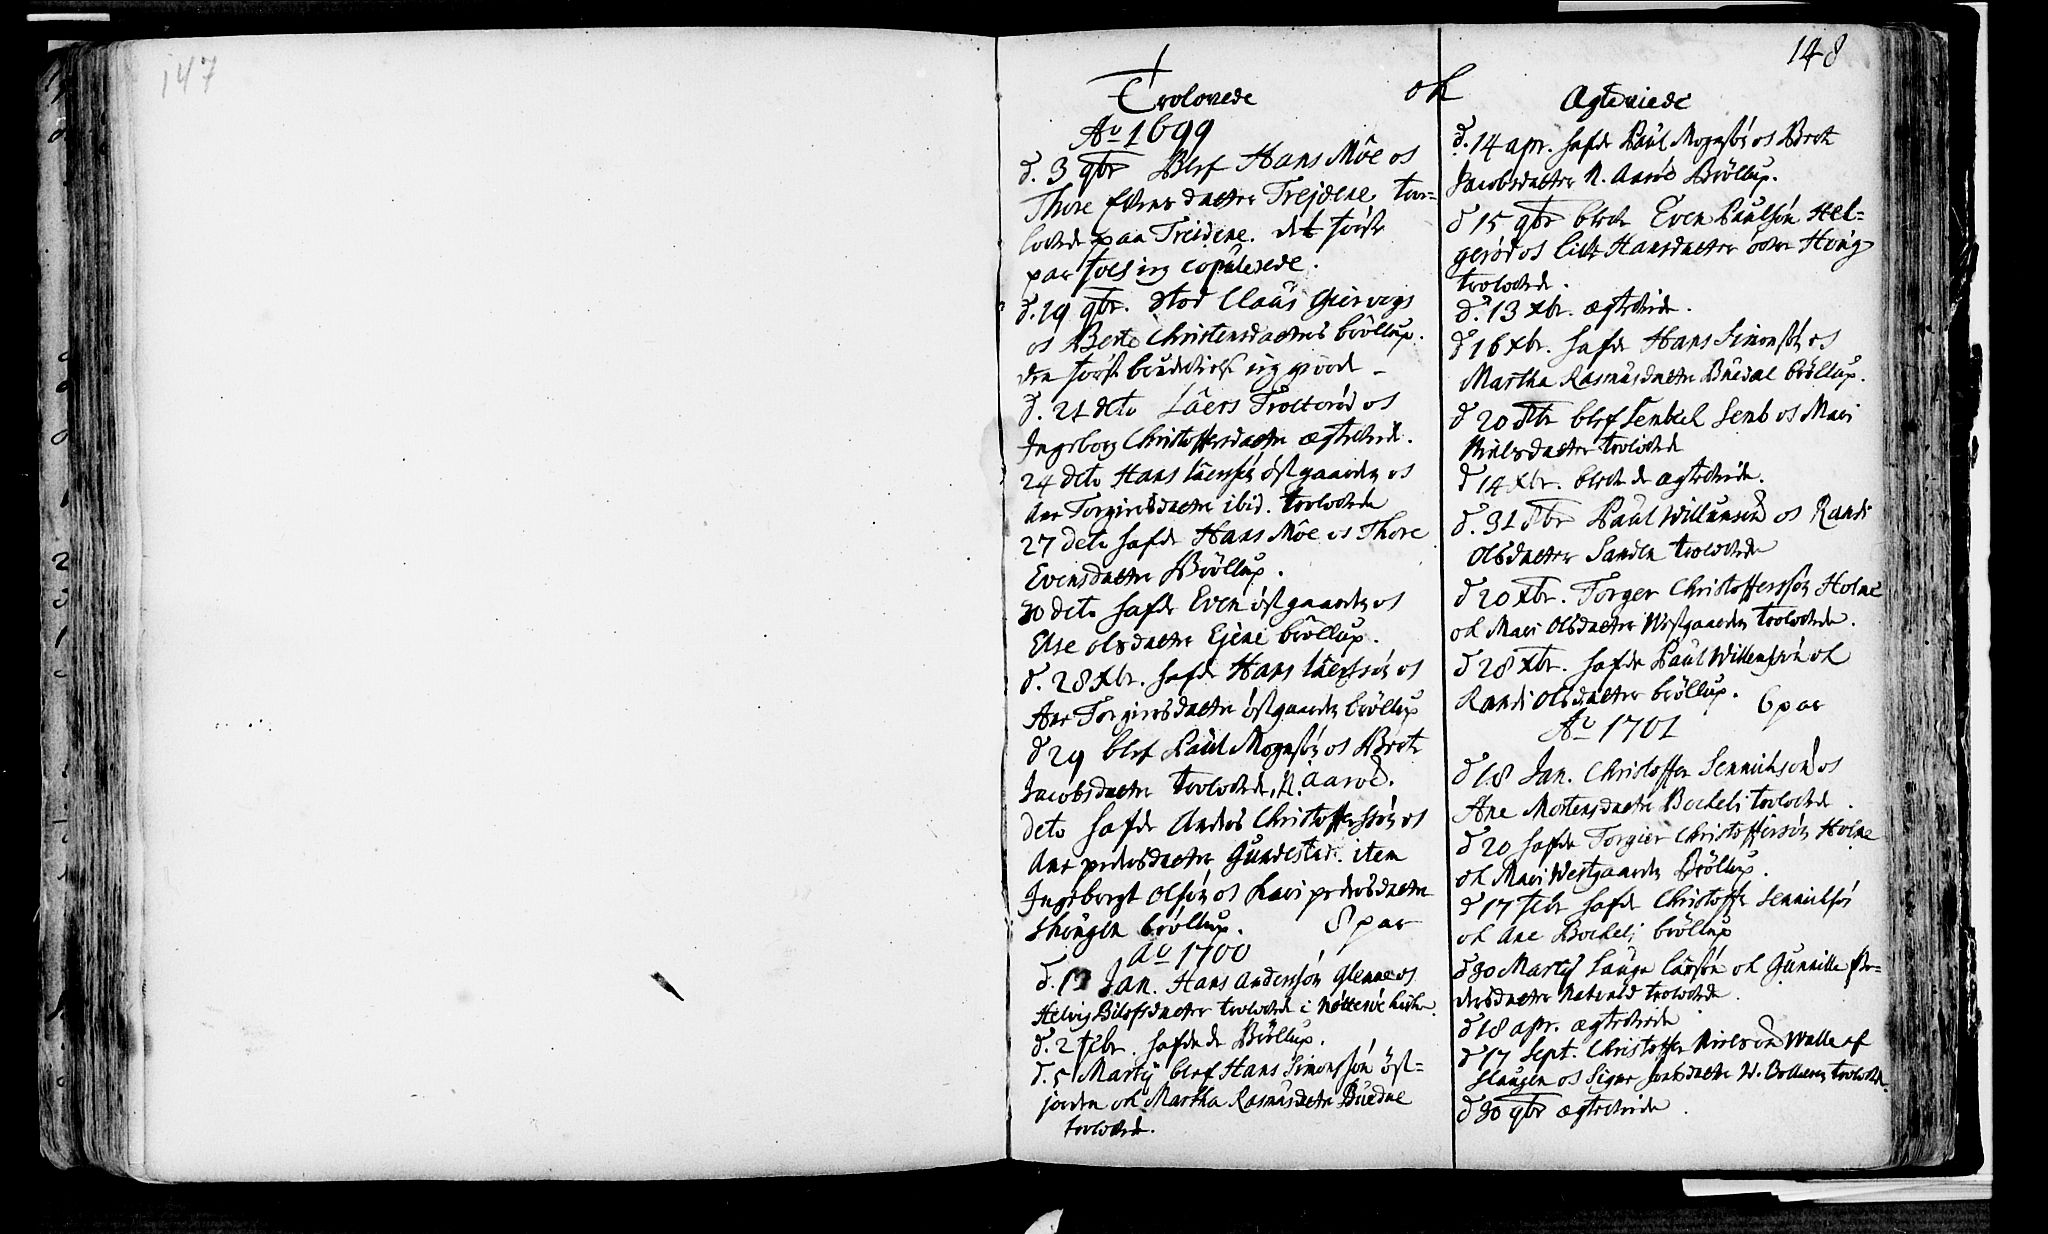 147
148
Trolovede ok Ægteviede
Ao 1699
d. 3 9br Blef Hans Môe os
Thore Evens dætter Trejdene trov=
lovede paa Treidene. det første
par som ieg copulerede.
d. 19 9br. stod Claus
os Berte Christensdatters bröllup.
den første ieg giorde
d. 21 dito Laers Troeterød os
Ingeborg Christoffersdaetter ægteviede.
24 dito Hans Laersön östgaarden os
Ane Torgiersdaetter ibid. trolovede
27 deto hafde Hans Môe os Thore
Evensdaetter Bröllup.
30 deto hafde Even östgaarden os
Else olsdaetter Ejene bröllup.
d. 28 Xbr. hafde Hans Laerssön os
Ane Torgiersdaetter östgaarden bröllup
d 29 blef Paul Mognsön os Berte
Jacobsdaetter trolovede, N. aaröd.
deto hafde Anders Christofferssön os
Ane pedersdaetter Gundestad. item
Ingebregt Olsön os Kari pedersdaetter
skougen bröllup. 8 par
Ao 1700
d. 13 Jan. Hans Anderssön Glenne os
Helvig daetter trolovede i Nötteröe kirke.
d. 2 febr. hafde de Bröllup.
d. 5 Martij blef Hans Simonssön öst=
jorden ok Martha Rasmusdaetter Buedal
trolovede.
d. 14 apr. hafde Paul Mognsön os Berte
Jacobsdaetter N. Aaröd Bröllup.
d 15 9br bleve Even Paulsön Hel=
geröd os Lisbe Hansdaetter övre Houg
trolovede.
d. 13 xbr. ægteviede.
d 16 xbr. hafde Hans Simonssön os
Martha Rasmusdaetter Buedal bröllup.
d 20 8br blef Semb os Mari
Nielsdaetter trolovede
d 14 xbr. bleve de ægteviede.
d. 31 8br Paul Willumsön os Randi
Olsdaetter Sanden trolovede
d 20 xbr. Torger Christofferssön Holme
ok Mari Olsdaetter Westgaarden trolovede.
d 28 xbr. hafde Paul Willumssön ok
Randi Olsdaetter bröllup. 6 par
Ao 1701
d 18 Jan. Christoffer Sennicksön os
Ane Mortensdaetter Bockeli trolovede.
d 20 hafde Torgier Christofferssön Holme
ok Mari Westgaarden Bröllup.
d 17 febr hafde Christoffer Sennicksön
ok Ane Bockeli bröllup
d 30 Martij Lauge Larsön ok Gunnille Pe=
dersdaetter trolovede.
d 18 apr. ægteviede
d 17 Sept. Christoffer Nielsön Walle af
Slaugen os Signe daetter N. Bolleren trolovede.
d 30 9br ægteviede.